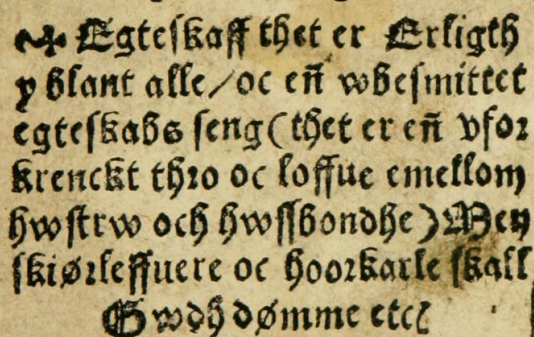 ☙✠ Egteskaff thet er Erligth
y blant alle/oc en̄ wbesmittet
egteskabs seng (thet er en̄ vfor
krenckt thro oc loffue emellom
hwstrw och hwssbondhe) Men
skiørleffuere oc hoorkarle skall
Gwdh dømme etcꝭ